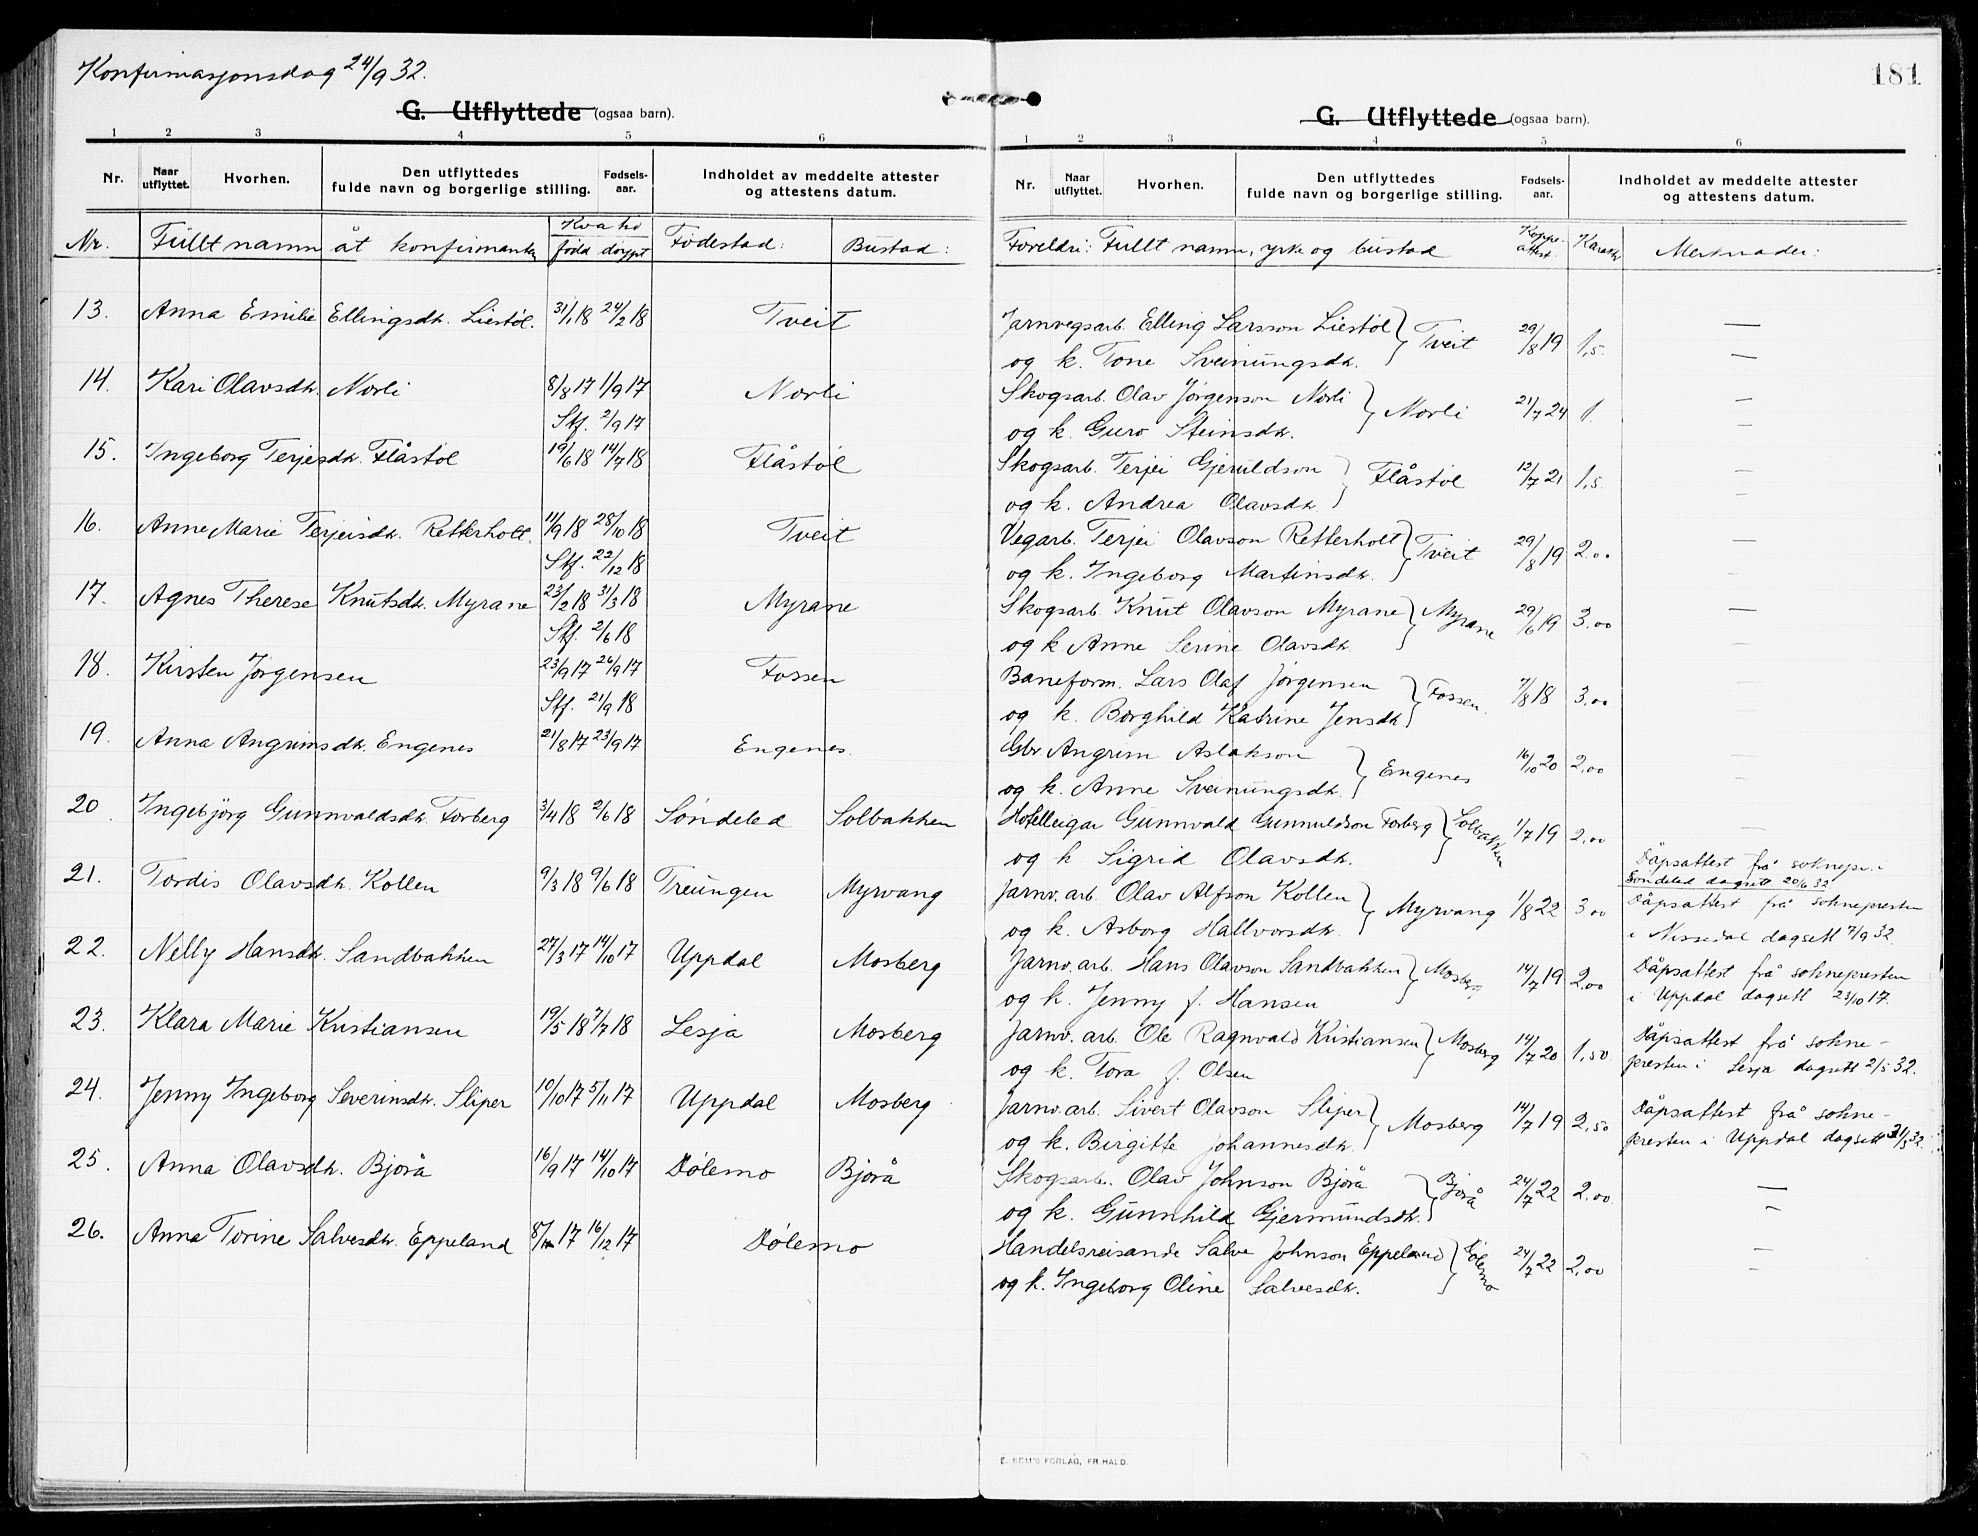 Konfirmasjonsdag 24/9 32.
G. Utflyttede (ogsaa barn).
1 2 3 4 5 6
Nr. Naar utflyttet. Hvorhen. Den utflyttedes fulde navn og borgerlige stilling. Fødsels-aar. Indholdet av meddelte attester og attestens datum.
Nr. Fullt namn åt konfirmanten Kva ho fødd døypt Fødestad: Bustad:
13. Anna Emilie Ellingsdtr. Liestöl. 31/1 18 24/2 18 Tveit
14. Kari Olavsdtr. Norli 8/8 17 1/9 17 Norli
Stf. 2/9 17
15. Ingeborg Terjesdtr. Flåstöl 19/6 18 14/7 18 Flåstöl
16. Anne Marie Terjeisdtr. Retterholt. 11/9 18 28/10 18 Tveit
Stf. 22/12 18
17. Agnes Therese Knutsdtr. Myrane 23/2 18 31/3 18 Myrane
Stf. 2/6 18
18. Kirsten Jörgensen 23/9 17 26/9 17 Fossen
Stf. 21/9 18
19. Anna Angrimsdtr. Engenes 21/8 17 23/9 17 Engenes.
20. Ingebjörg Gunnvaldsdtr. Forberg 3/4 18 2/6 18 Söndeled Solbakken
21. Tordis Olavsdtr. Kollen 9/3 18 9/6 18 Treungen Myrvang
22. Nelly Hansdtr. Sandbakken 27/3 17 14/10 17 Uppdal Mosberg
23. Klara Marie Kristiansen 19/5 18 7/7 18 Lesja Mosberg
24. Jenny Ingeborg Severinsdtr. Sliper 10/10 17 5/11 17 Uppdal Mosberg
25. Anna Olavsdtr. Bjorå 16/9 17 14/10 17 Dölemo Bjorå
26. Anna Torine Salvesdtr. Eppeland 17 16/12 17 Dölemo
181
G. Utflyttede (ogsaa barn).
1 2 3 4 5 6
Nr. Naar utflyttet. Hvorhen. Den utflyttedes fulde navn og borgerlige stilling. Fødsels-aar. Indholdet av meddelte attester og attestens datum.
Foreldri: Fullt namn, yrke og bustad Koppe-attest. Karakter Merknader:
Jarnvegsarb. Elling Larsson Liestöl } Tveit 29/8 19 1,5. —
og k. Tone Sveinungsdtr. —
Skogsarb. Olav Jörgenson Norli } Norli 21/7 24 1. —
og k. Guro Steinsdtr. —
Skogsarb. Terjei Gjeruldson } Flåstöl 12/7 21 1,5. —
og k. Andrea Olavsdtr. —
Vegarb. Terjei Olavson Retterholt } Tveit 29/8 19 2.00 —
og k. Ingeborg Martinsdtr. —
Skogsarb. Knut Olavson Myrane } Myrane 29/6 19 3.00 —
og k. Anne Serine Olavsdtr. —
Baneform. Lars Olaf Jörgensen } Fossen. 7/8 18 3.00 —
og k. Borghild Katrine Jensdtr. —
Gbr Angrim Aslakson } Engenes 16/10 20 2,00 —
og k. Anne Sveinungsdtr. —
Hotelleigar Gunnvald Gunnuldson Forberg } Solbakken 1/7 19 2,00 —
og k. Sigrid Olavsdtr. Dåpsattest frå soknepr. i
Söndeled dagsett 20/6 32.
Jarnv. arb. Olav Alfson Kollen } Myrvang 1/8 22 3.00 Dåpsattest frå soknepresten
og k. Asborg Hallvorsdtr. i Nissedal dagsett 7/9 32.
Jarnv. arb. Hans Olavson Sandbakken } Mosberg 14/7 19 2,00 Dåpsattest frå soknepresten
og k. Jenny f. Hansen i Uppdal dagsett 23/10 17.
Jarnv. arb. Ole Ragnvald Kristiansen } Mosberg 14/7 20 1,50. Dåpsattest frå sokne-
og k. Tora f. Olsen presten i Lesja dagsett 2/5 32.
Jarnv. arb. Sivert Olavson Sliper } Mosberg 14/7 19 2,50 Dåpsattest frå sokne-
og k. Birgitte Johannesdtr. presten i Uppdal dagsett 31/5 32.
Skogsarb. Olav Johnson Bjorå } Bjorå 24/7 22 2.00 —
og k. Gunnhild Gjermundsdtr. —
Handelsreisande Salve Johnson Eppeland } Dölemo 24/7 22 2,00 —
og k. Ingeborg Oline Salvesdtr. —
E. SEM'S FORLAG, FR.HALD.